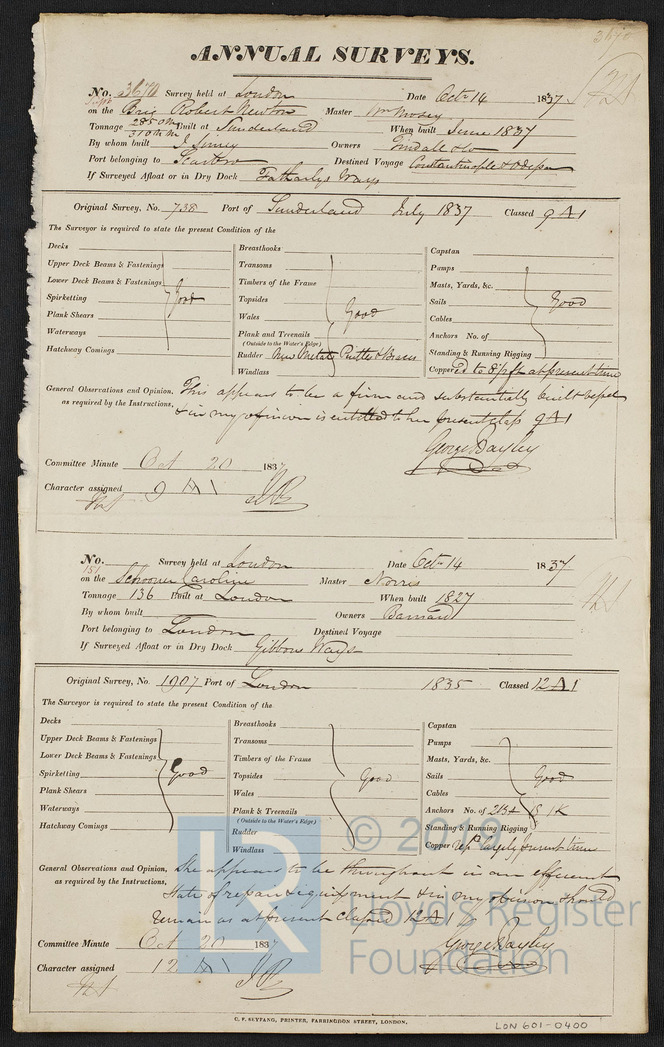 ANNUAL SURVEYS.
No. 3670 Survey held at London Date Octr 14 1837
on the Brig Robert Newton Master Wm Mosey
Tonnage 285 O M Built at Sunderland When built June 1837
310 N M
By whom built Owners Tindall & Co
Port belonging to Scarboro Destined Voyage Constantinople & Odessa
If Surveyed Afloat or in Dry Dock Ways
Original Survey, No. 738 Port of Sunderland July 1837 Classed 9 A 1
The Surveyor is required to state the present Condition of the
Decks
Upper Deck Beams & Fastenings
Lower Deck Beams & Fastenings
Spirketting Good
Plank Shears
Waterways
Hatchway Comings
Breasthooks
Transoms
Timbers of the Frame
Topsides Good
Wales
Plank and Treenails
(Outside to the Water's Edge)
Rudder New Metal Pintles & Braces
Windlass
Capstan
Pumps
Masts, Yards, &c.
Sails Good
Cables
Anchors No. of
Standing & Running Rigging
Copper'd to at present time
General Observations and Opinion, This appears to be a firm and substantially built vessel
as required by the Instructions, & in my opinion is entitled to her present class 9 A 1
George Bayley
Committee Minute Oct 20 1837
Character assigned 9 A 1
No. 151 Survey held at London Date Octr 14 1837
on the Schooner Caroline Master Norris
Tonnage 136 Built at London When built 1827
By whom built Owners Barnard
Port belonging to London Destined Voyage
If Surveyed Afloat or in Dry Dock Gibbons Ways
Original Survey, No. 1907 Port of London 1835 Classed 12 A 1
The Surveyor is required to state the present Condition of the
Decks
Upper Deck Beams & Fastenings
Lower Deck Beams & Fastenings
Spirketting Good
Plank Shears
Waterways
Hatchway Comings
Breasthooks
Transoms
Timbers of the Frame
Topsides Good
Wales
Plank & Treenails
(Outside to the Water's Edge)
Rudder
Windlass
Capstan
Pumps
Masts, Yards, &c.
Sails Good
Cables
Anchors No. of 2B & 1S 1K
Standing & Running Rigging
Copper present time
General Observations and Opinion, She appears to be throughout in an efficient
as required by the Instructions, State of repair & equipment & in my opinion should
remain as at present classed 12 A 1
George Bayley
Committee Minute Oct 20 1837
Character assigned 12 A 1
C. F. SEYFANG, PRINTER, FARRINGDON STREET, LONDON.
LON 601-0400
LR
© 2019
Lloyd's Register
Foundation